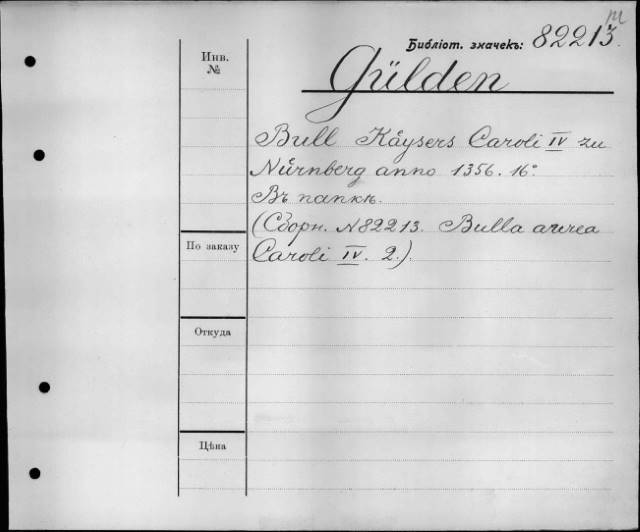 Библіот. значекъ: 82213
Инв. №
Gülden
Bull Kaÿsers Caroli IV zu
Nürnberg anno 1356. 16°
Въ папкѣ.
(Сборн. № 82213. Bulla aurea
Caroli IV. 2.).
По заказу
Откуда
Цѣна